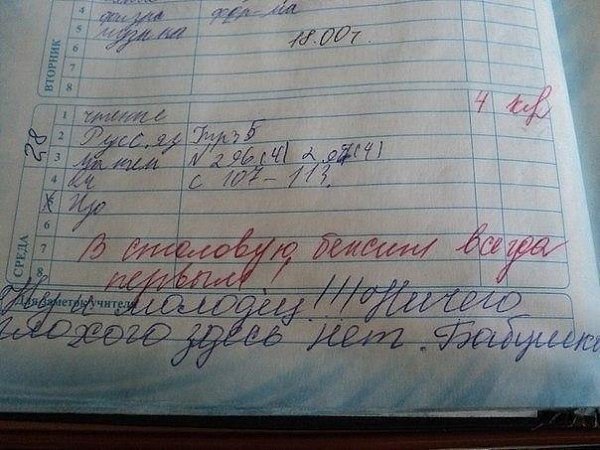 4 физра фор-ма
5 музыка
6 18.00 г.
7
8
ВТОРНИК
28
1 чтение 4
2 Русс.яз Упр 5
3 матем N 296(4) 297(4)
4 с 107-113.
5 Изо
6
7 В столовую, бежит всегда
8 первым
Для заметок учителя
Ну и молодец!!! Ничего
плохого здесь нет. Бабушка
СРЕДА